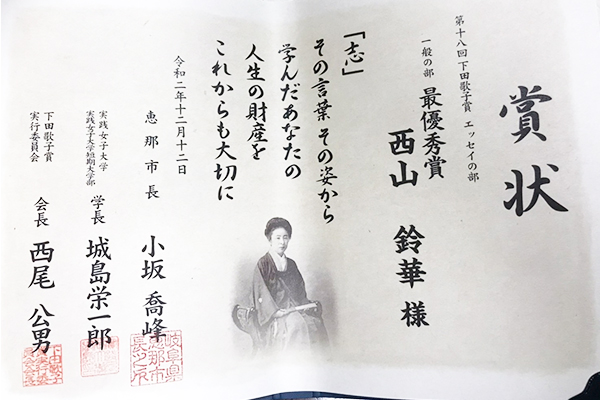 賞状
第十八回 下田歌子賞 エッセイの部
一般の部 最優秀賞
西山 鈴華 様
「志」
その言葉 その姿から
学んだあなたの
人生の財産を
これからも大切に
令和二年十二月十二日
恵那市長 小坂 喬峰
実践女子大学
実践女子大学短期大学部
学長 城島栄一郎
下田歌子賞
実行委員会
会長 西尾 公男
岐阜県
恵那市
長之印